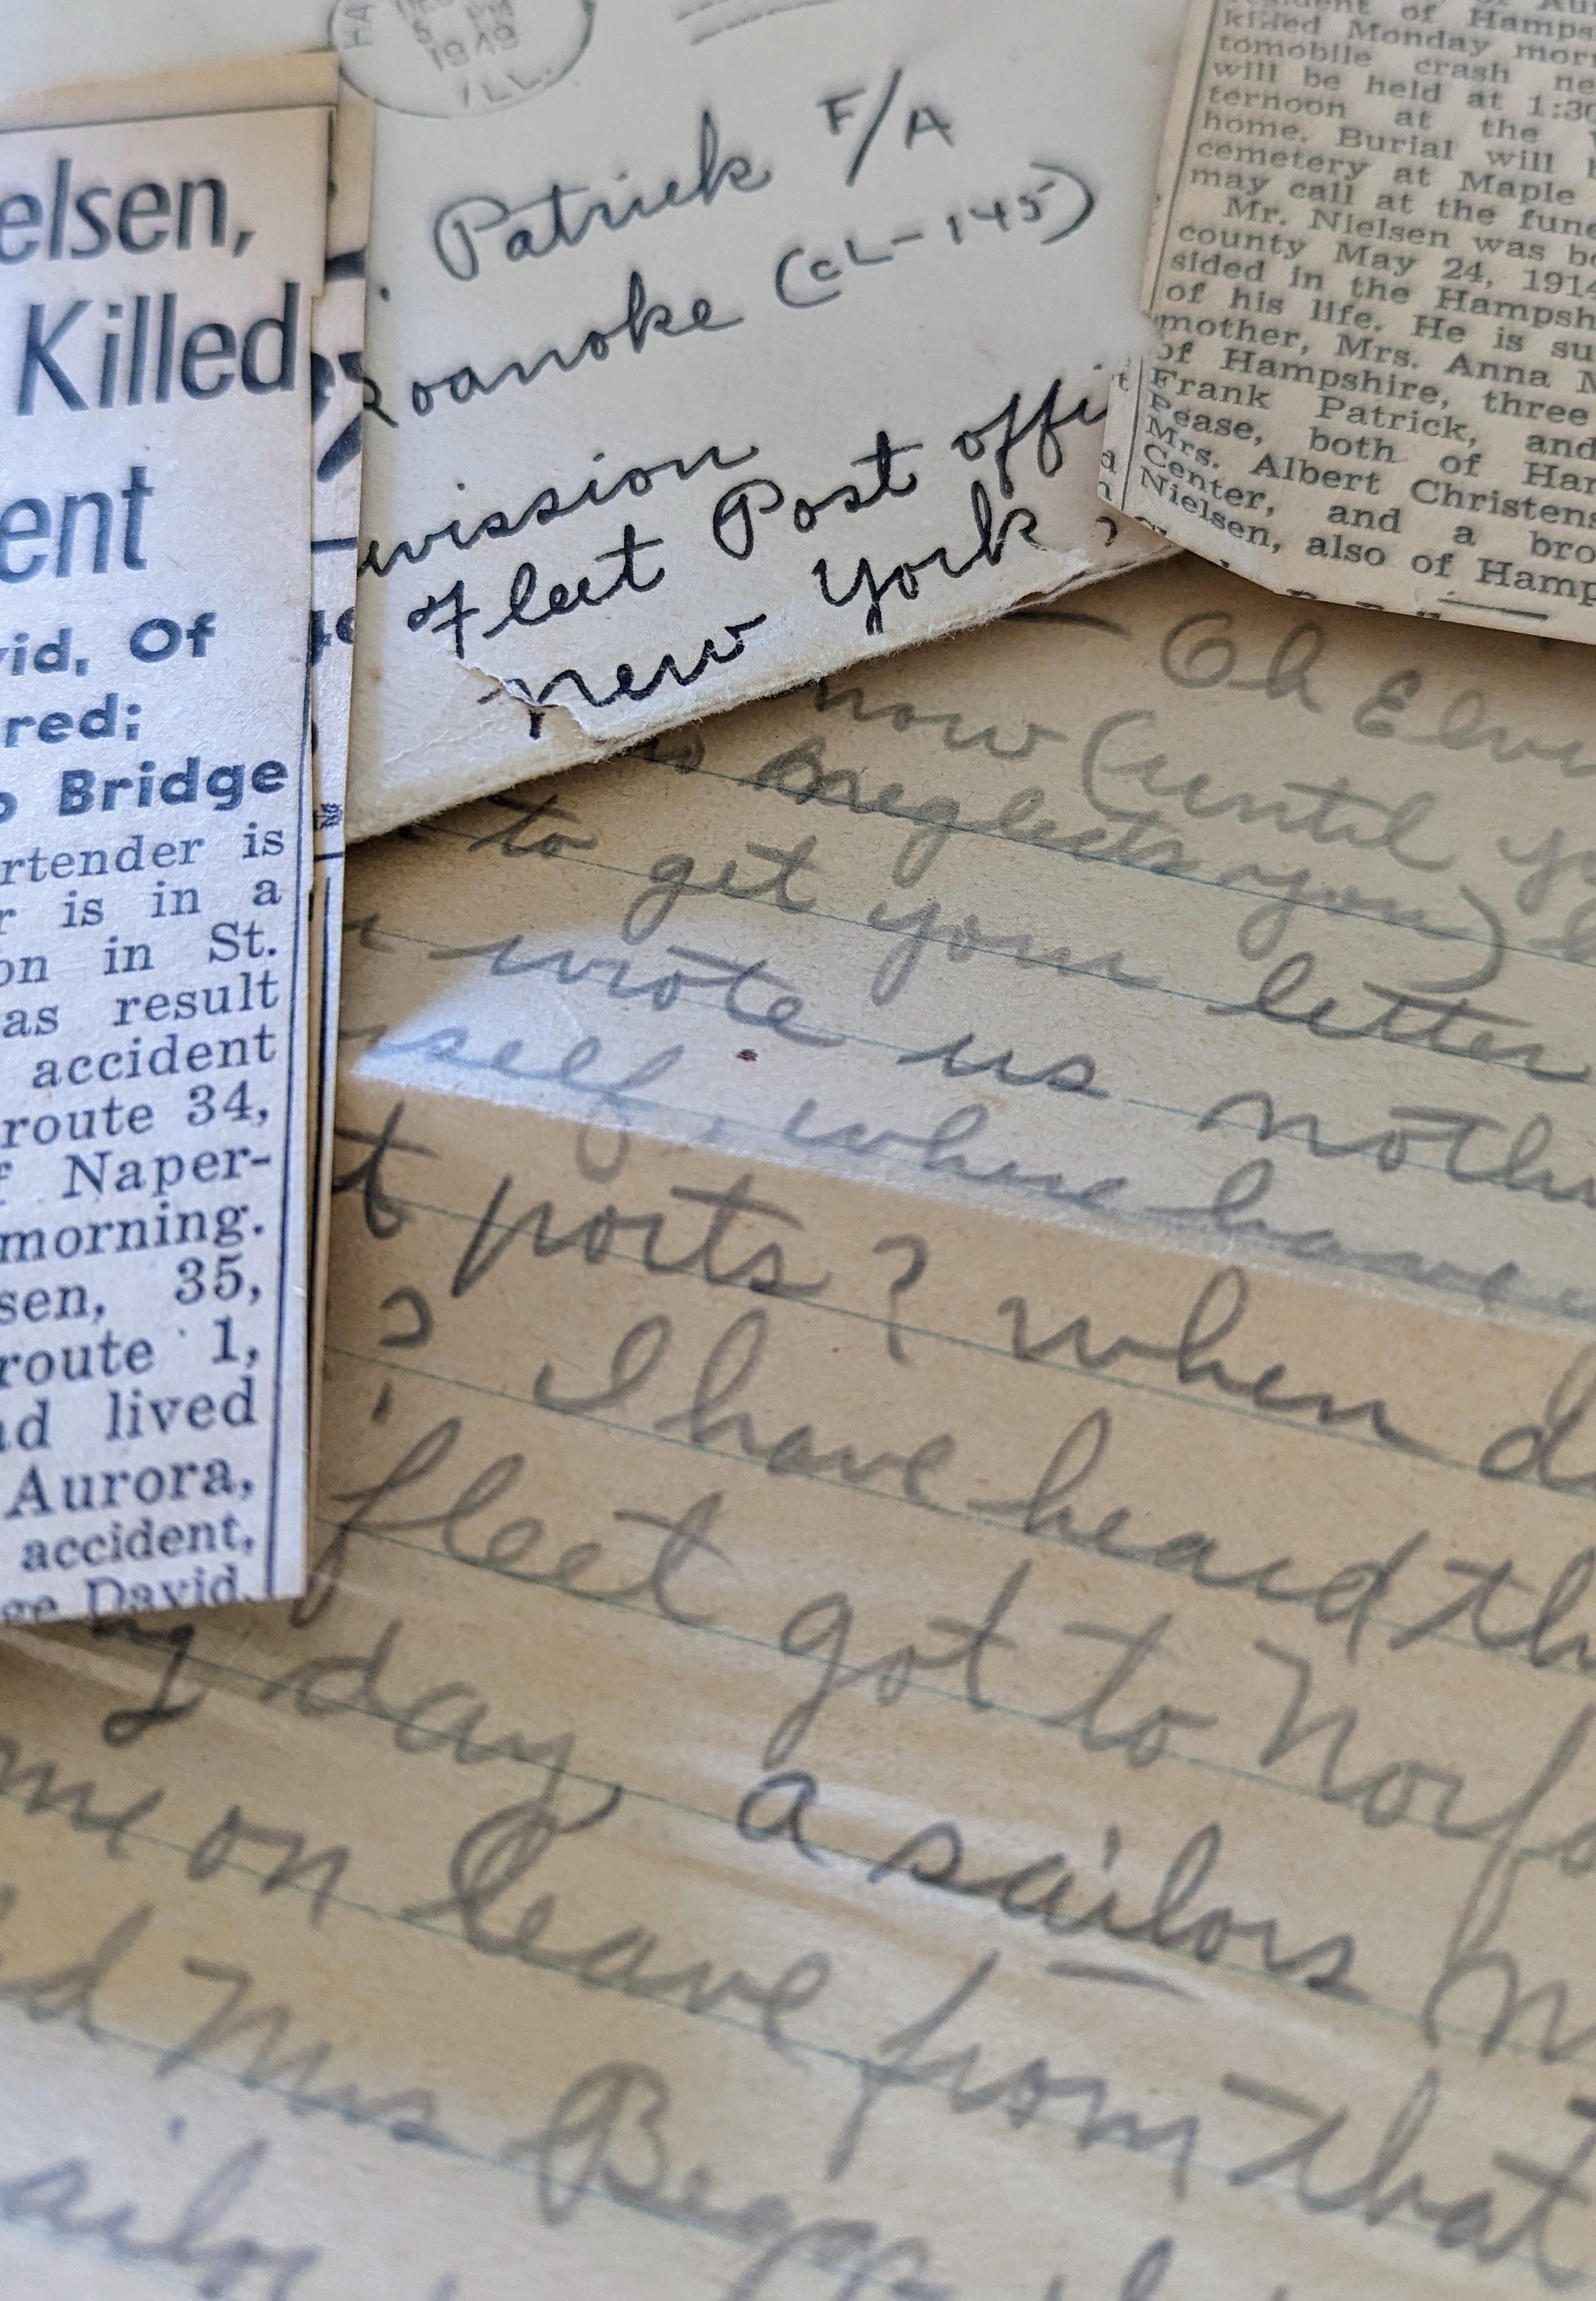 elsen,
Killed
ent
vid, Of
red;
Bridge
rtender is
r is in a
on in St.
as result
accident
route 34,
f Naper-
morning.
sen, 35,
route 1,
nd lived
Aurora,
accident,
ge David,
HA
5
1949
ILL.
Patrick F/A
Roanoke (CL-145)
ivission
Fleet Post offi
New York
ident of Hamps
killed Monday morn
tomobile crash ne
will be held at 1:30
ternoon at the
home. Burial will b
cemetery at Maple
may call at the fune
Mr. Nielsen was bo
county May 24, 1914
sided in the Hampsh
of his life. He is su
mother, Mrs. Anna N
of Hampshire, three
Frank Patrick, and
Pease, both of Har
Mrs. Albert Christens
Center, and a bro
Nielsen, also of Hamp
Oh Elvi
now (until yo
neglects you)
to get your letter
wrote us nothi
self, where have
t ports? when d
? I have heard th
fleet got to Norfo
day, a sailors m
me on leave from that
d Mrs
ailor